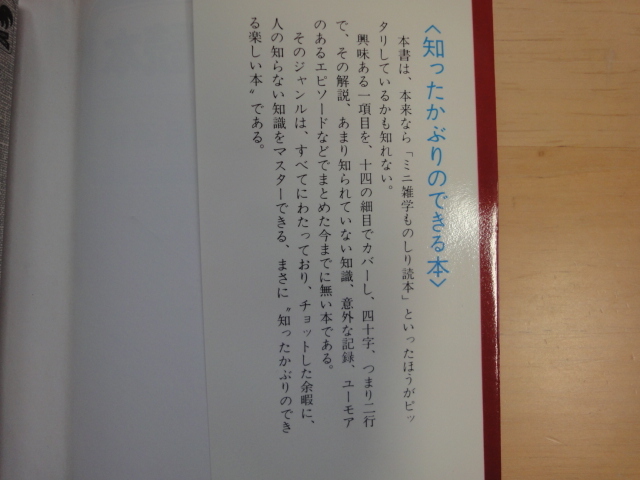 〈知ったかぶりのできる本〉
本書は、本来なら「ミニ雑学ものしり読本」といったほうがピッ
タリしているかも知れない。
興味ある一項目を、十四の細目でカバーし、四十字、つまり二行
で、その解説、あまり知られていない知識、意外な記録、ユーモア
のあるエピソードなどでまとめた今までに無い本である。
そのジャンルは、すべてにわたっており、チョットした余暇に、
人の知らない知識をマスターできる、まさに〝知ったかぶりのでき
る楽しい本〟である。